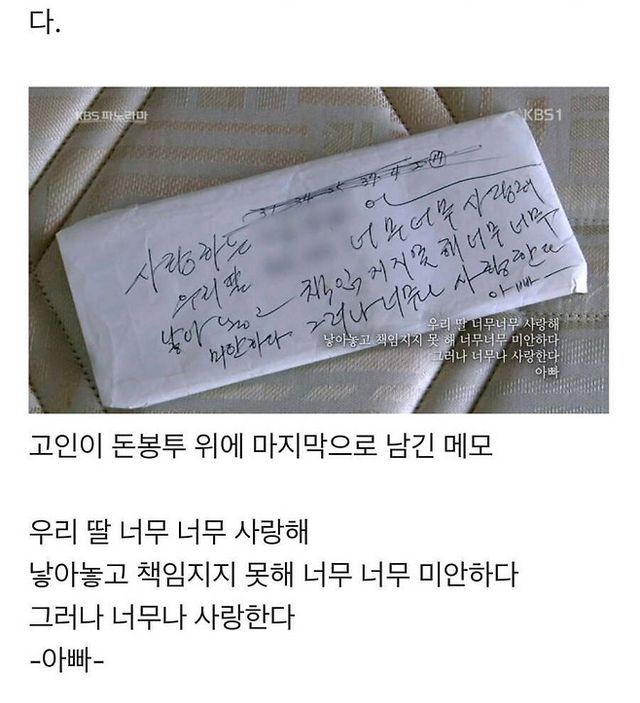 다.
KBS 파노라마
KBS1
31 34 35 37 4 2 17
사랑하는
우리 딸 너무 너무 사랑해
낳아 놓고 책임지지 못해 너무 너무
미안하다 그러나 너무나 사랑한다
아빠
우리 딸 너무너무 사랑해
낳아놓고 책임지지 못 해 너무너무 미안하다
그러나 너무나 사랑한다
아빠
고인이 돈봉투 위에 마지막으로 남긴 메모
우리 딸 너무 너무 사랑해
낳아놓고 책임지지 못해 너무 너무 미안하다
그러나 너무나 사랑한다
-아빠-